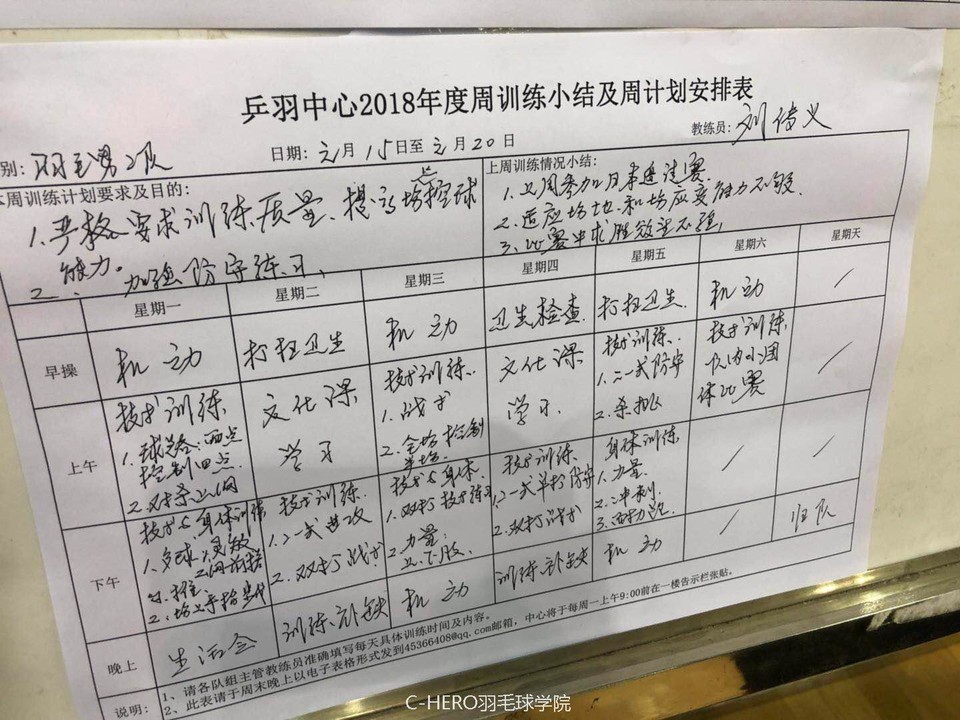 乒羽中心2018年度周训练小结及周计划安排表
别:羽毛男2队 日期:元月15日至元月20日 教练员:刘
本周训练计划要求及目的:
1.严格要求训练质量、提高全场控球
能力。
2、加强防守练习,
上周训练情况小结:
1.上周参加日来邀请赛.
2.适应场地、和场应变能力不够
3、比赛中求胜欲望不强,
星期一 星期二 星期三 星期四 星期五 星期六 星期天
早操 机动 打扫卫生 机动 卫生检查. 打扫卫生. 机动 /
上午
技术训练
1.球类:两点
控制四点.
2.对杀上网
文化课
学习
技术训练.
1.战术
2.全场控制
半场.
文化课
学习.
技术训练.
1.二一式防守
2.杀
技术训练.
队内小团
体比赛
/
下午
技术与身体训练
1.多球
2.
技术训练.
1.二一式进攻
2.双打战术
技术与身体.
1.双打技术练习
2.力量:
上下肢
技术训练.
1.二一式单打防守
2.双打战术
身体训练
1.力量
2.冲刺
3.
/
/
晚上 生活会 训练补缺 机动 训练补缺 机动 / 归队
说明:
1、请各队组主管教练员准确填写每天具体训练时间及内容。
2、此表请于周末晚上以电子表格形式发到45366408@qq.com邮箱,中心将于每周一上午9:00前在一楼告示栏张贴。
C-HERO羽毛球学院